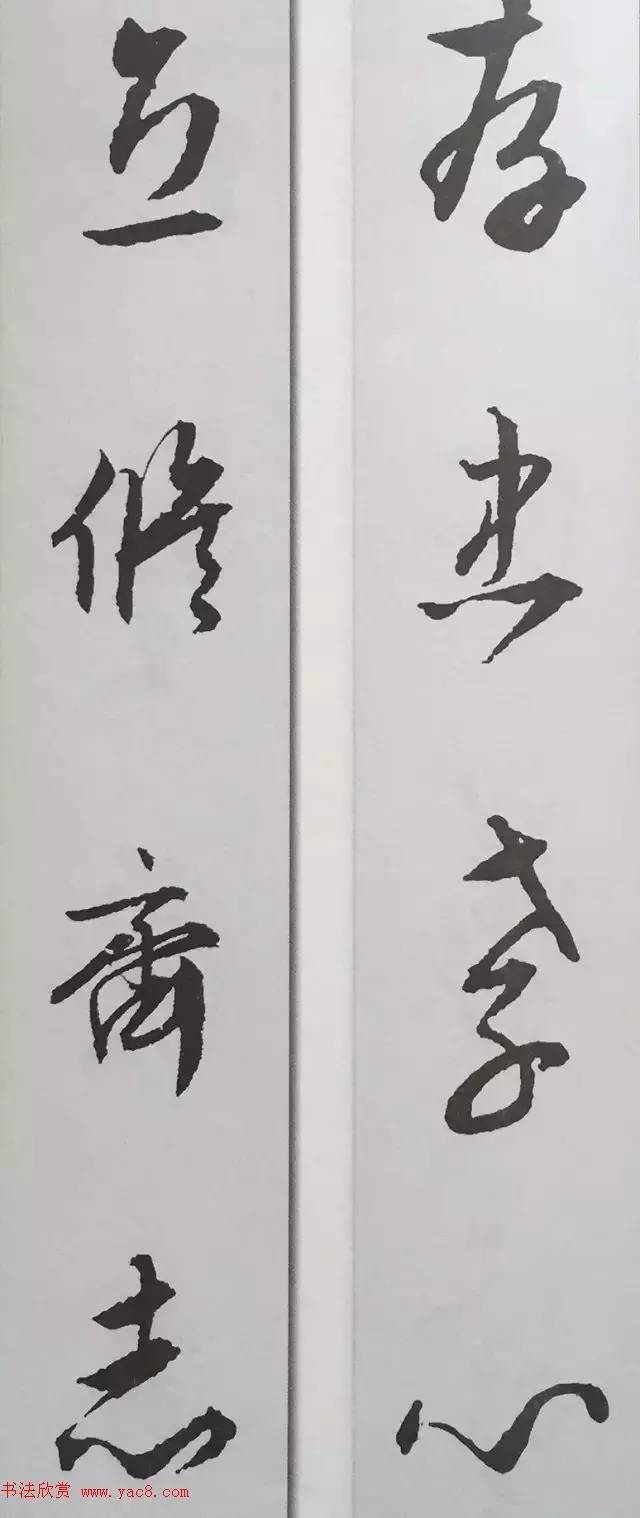 存忠孝心
立修齊志
书法欣赏 www.yac8.com